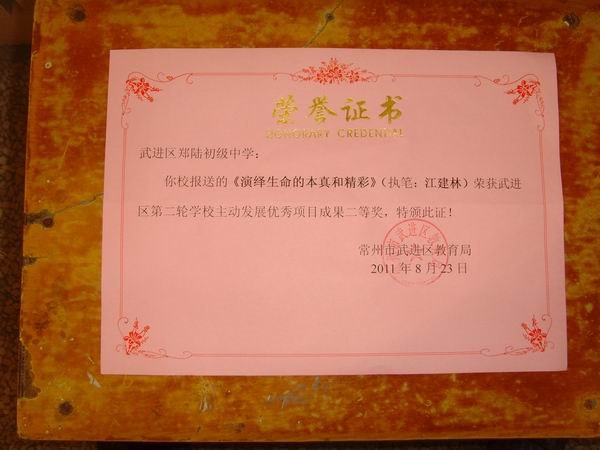 荣誉证书
HONORARY CREDENTIAL
武进区郑陆初级中学：
你校报送的《演绎生命的本真和精彩》（执笔：江建林）荣获武进
区第二轮学校主动发展优秀项目成果二等奖，特颁此证！
常州市武进区教育局
2011 年 8 月 23 日